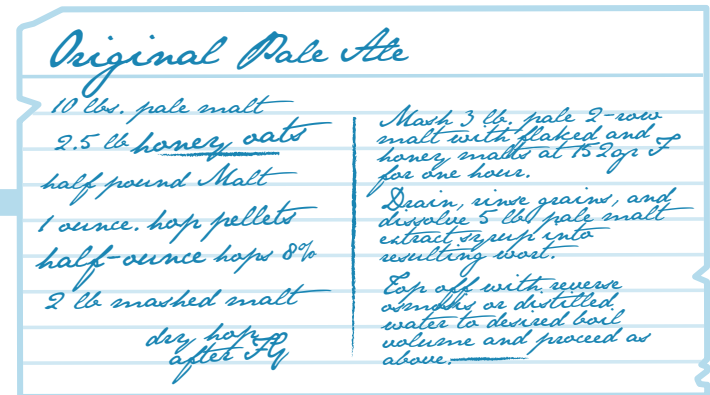 Original Pale Ale
10 lbs. pale malt
2.5 lb honey oats
half pound Malt
1 ounce. hop pellets
half-ounce hops 8%
2 lb mashed malt
dry hop
after FG
Mash 3 lb. pale 2-row
malt with flaked and
honey malts at 152gr F
for one hour.
Drain, rinse grains, and
dissolve 5 lb pale malt
extract syrup into
resulting wort.
Top off with reverse
osmosis or distilled
water to desired boil
volume and proceed as
above.